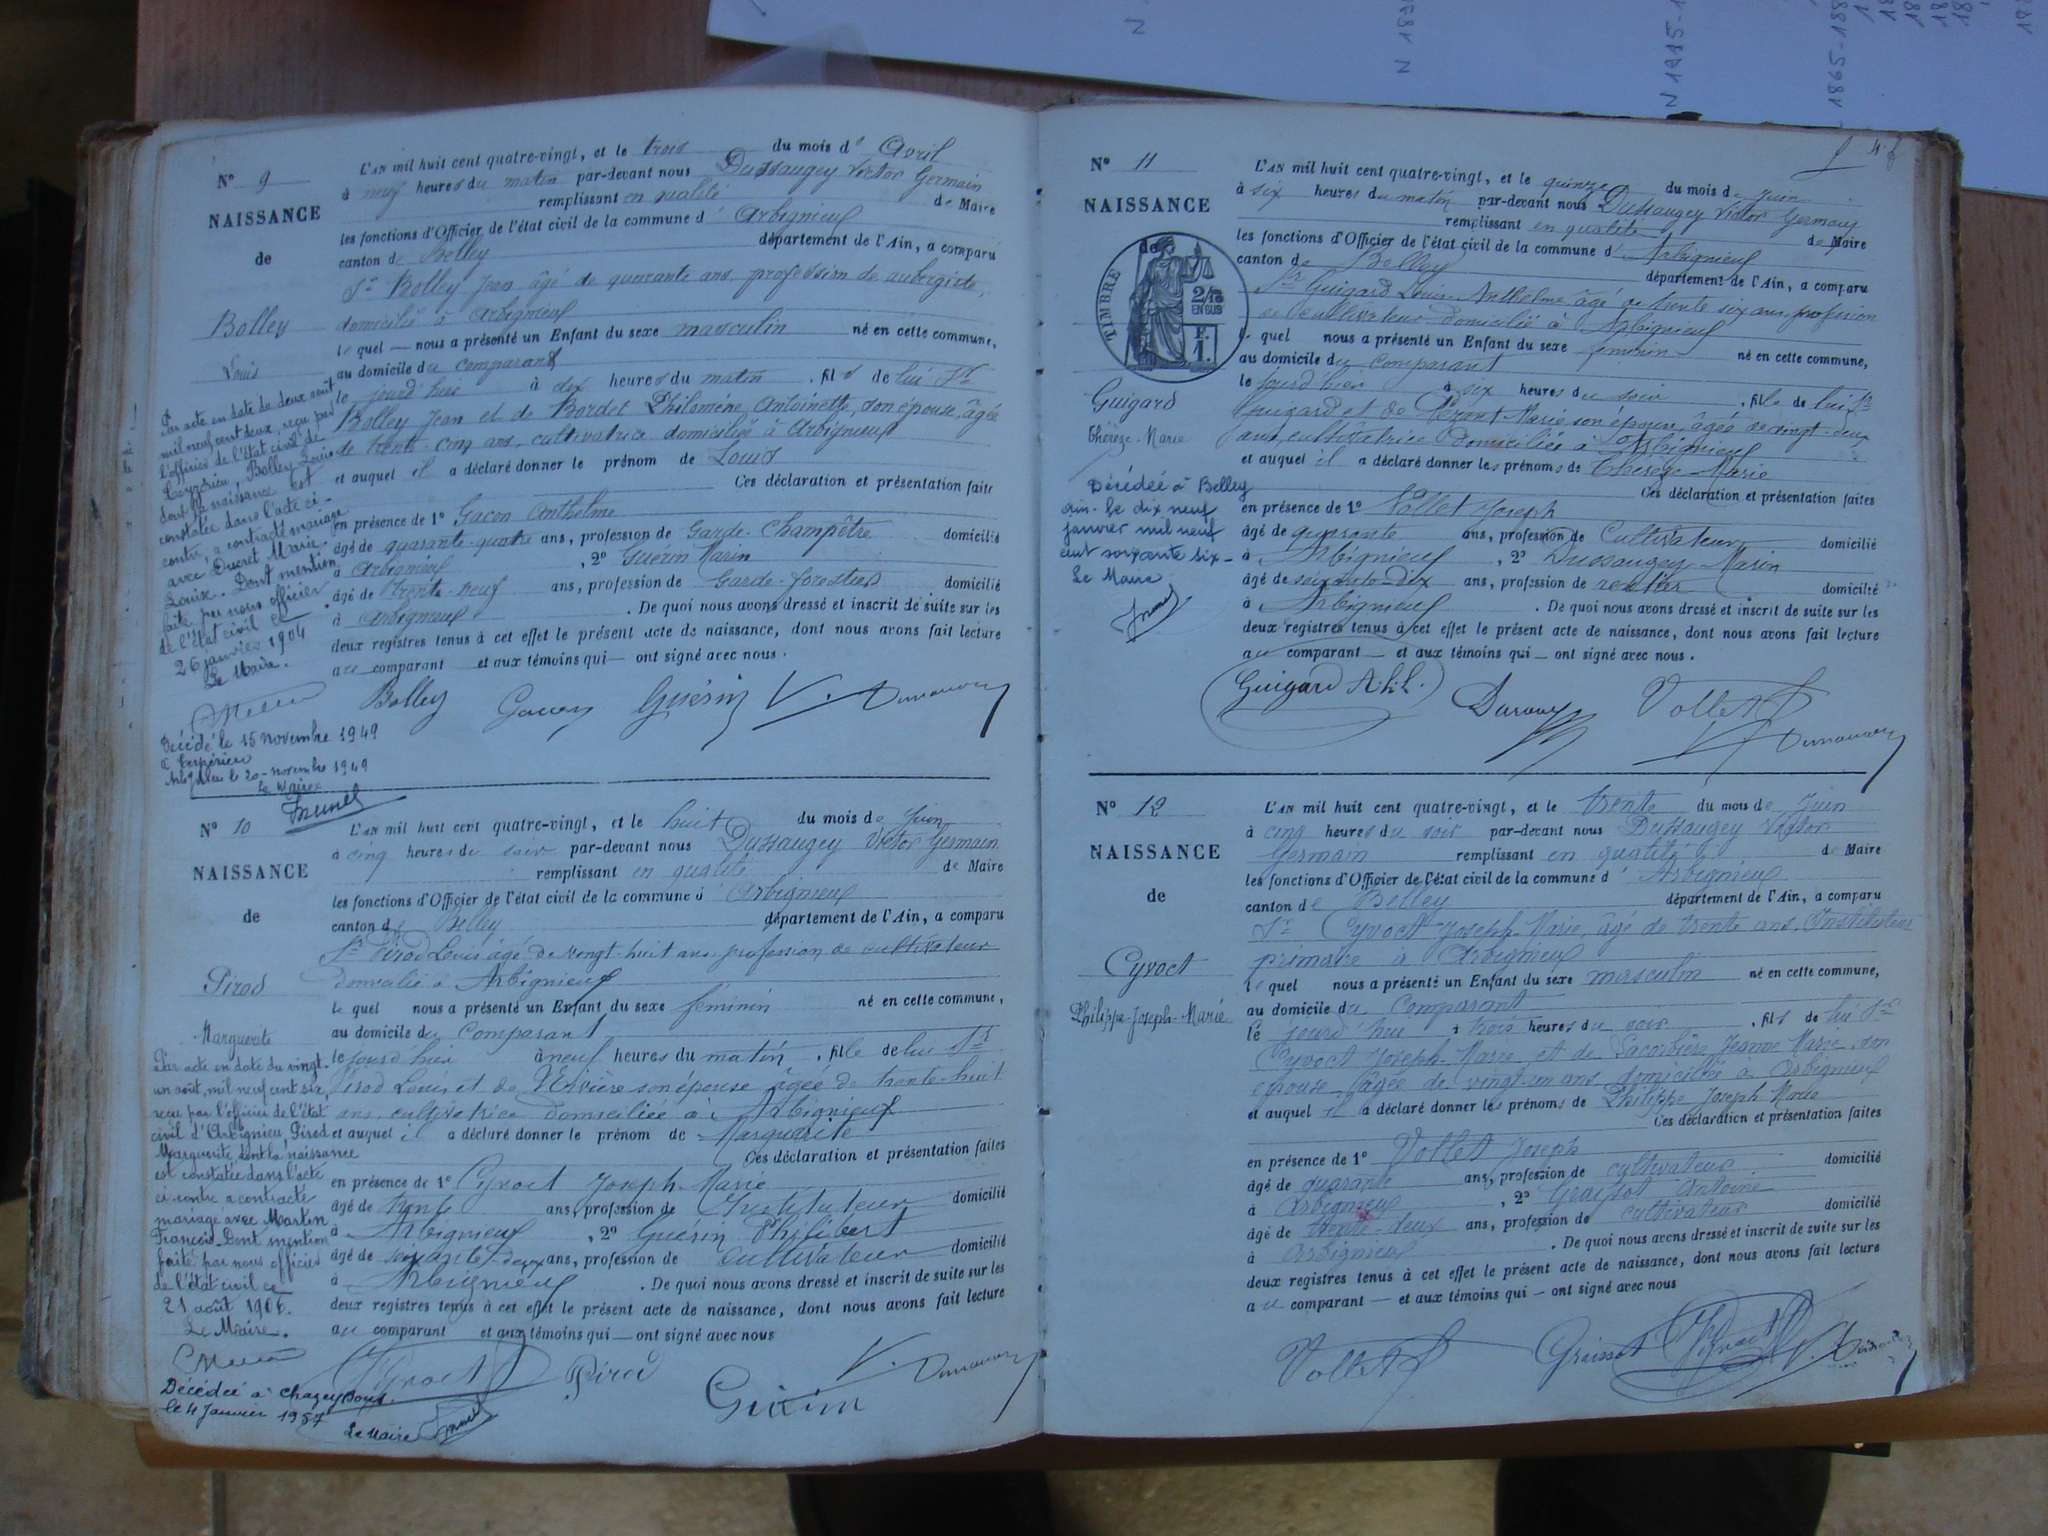 N° 9
NAISSANCE
de
Bolley
Louis
L'AN mil huit cent quatre-vingt, et le trois du mois d' Avril
à neuf heures du matin par-devant nous Dussaugey Victor Germain
remplissant en qualité de Maire
les fonctions d'Officier de l'état civil de la commune d' Arbignieu
canton de Belley département de l'Ain, a comparu
Sr Bolley Jean âgé de quarante ans, profession de aubergiste,
domicilié à Arbignieu
le quel — nous a présenté un Enfant du sexe masculin né en cette commune,
au domicile du comparant
le jourd'hui à six heures du matin, fils de lui Sr
Bolley Jean et de Bordet Philomène Antoinette, son épouse, âgée
de trente-cinq ans, cultivatrice domiciliée à Arbignieu
et auquel il a déclaré donner le prénom de Louis
Ces déclaration et présentation faites
en présence de 1° Gacon Anthelme
âgé de quarante-quatre ans, profession de Garde-Champêtre domicilié
à Arbignieu, 2° Guérin Marin
âgé de trente-neuf ans, profession de Garde-forestier domicilié
à Arbignieu. De quoi nous avons dressé et inscrit de suite sur les
deux registres tenus à cet effet le présent acte de naissance, dont nous avons fait lecture
au comparant et aux témoins qui — ont signé avec nous.
Bolley Gacon Guérin V. Dussaugey
Par acte en date du deux août
mil neuf cent deux, reçu par
l'officier de l'état civil de
Peyzrieu, Bolley Louis
dont la naissance est
constatée dans l'acte ci-
contre a contracté mariage
avec Ducret Marie
Louise. Dont mention
faite par nous officier
de l'état civil ce
26 janvier 1904
Le Maire.
Décédé le 15 novembre 1949
à
Arbignieu le 20 novembre 1949
Le Maire
N° 10
NAISSANCE
de
Pirod
Marguerite
L'AN mil huit cent quatre-vingt, et le huit du mois de Juin
à cinq heures du soir par-devant nous Dussaugey Victor Germain
remplissant en qualité de Maire
les fonctions d'Officier de l'état civil de la commune d' Arbignieu
canton de Belley département de l'Ain, a comparu
Sr Pirod Louis âgé de vingt-huit ans profession de cultivateur
domicilié à Arbignieu
le quel nous a présenté un Enfant du sexe féminin né en cette commune,
au domicile du comparant
le jourd'hui à neuf heures du matin, fille de lui Sr
Pirod Louis et de Rivière son épouse âgée de trente-huit
ans, cultivatrice domiciliée à Arbignieu
et auquel il a déclaré donner le prénom de Marguerite
Ces déclaration et présentation faites
en présence de 1° Cyvoct Joseph-Marie
âgé de trente ans, profession de Instituteur domicilié
à Arbignieu, 2° Guérin Philibert
âgé de soixante-deux ans, profession de cultivateur domicilié
à Arbignieu. De quoi nous avons dressé et inscrit de suite sur les
deux registres tenus à cet effet le présent acte de naissance, dont nous avons fait lecture
au comparant et aux témoins qui — ont signé avec nous
Cyvoct Pirod Guérin V. Dussaugey
Par acte en date du vingt-
un août, mil neuf cent six,
reçu par l'officier de l'état
civil d'Arbignieu, Pirod
Marguerite dont la naissance
est constatée dans l'acte
ci-contre a contracté
mariage avec Martin
François. Dont mention
faite par nous officier
de l'état civil ce
21 août 1906.
Le Maire.
Décédée à Chazey Bons
le 4 Janvier 1957
Le Maire
N° 11
NAISSANCE
de
TIMBRE
2/10
EN SUS
F.
1.
Guigard
Thérèse-Marie
L'AN mil huit cent quatre-vingt, et le quinze du mois de juin
à six heures du matin par-devant nous Dussaugey Victor Germain
remplissant en qualité de Maire
les fonctions d'Officier de l'état civil de la commune d' Arbignieu
canton de Belley département de l'Ain, a comparu
Sr Guigard Louis-Anthelme âgé de trente six ans profession
de cultivateur domicilié à Arbignieu
le quel nous a présenté un Enfant du sexe féminin né en cette commune,
au domicile du comparant
le jourd'hier à six heures du soir, fille de lui Sr
Guigard et de Marie son épouse, âgée de vingt-deux
ans, cultivatrice domiciliée à Arbignieu
et auquel il a déclaré donner les prénoms de Thérèse-Marie
Ces déclaration et présentation faites
en présence de 1° Vollet Joseph
âgé de quarante ans, profession de Cultivateur domicilié
à Arbignieu, 2° Dussaugey Marin
âgé de soixante-dix ans, profession de rentier domicilié
à Arbignieu. De quoi nous avons dressé et inscrit de suite sur les
deux registres tenus à cet effet le présent acte de naissance, dont nous avons fait lecture
au comparant — et aux témoins qui — ont signé avec nous.
Guigard A.L.L. Vollet V. Dussaugey
Décédée à Belley
Ain- le dix neuf
janvier mil neuf
cent soixante six-
Le Maire
N° 12
NAISSANCE
de
Cyvoct
Philippe-Joseph-Marie
L'AN mil huit cent quatre-vingt, et le trente du mois de Juin
à cinq heures du soir par-devant nous Dussaugey Victor
Germain remplissant en qualité de Maire
les fonctions d'Officier de l'état civil de la commune d' Arbignieu
canton de Belley département de l'Ain, a comparu
Sr Cyvoct Joseph-Marie, âgé de trente ans, Instituteur
primaire à Arbignieu
le quel nous a présenté un Enfant du sexe masculin né en cette commune,
au domicile du Comparant
le jourd'hui à trois heures du soir, fils de lui Sr
Cyvoct Joseph-Marie et de Lacorbière Jeanne Marie, son
épouse, âgée de vingt-un ans domiciliée à Arbignieu
et auquel il a déclaré donner les prénoms de Philippe Joseph Marie
Ces déclaration et présentation faites
en présence de 1° Vollet Joseph
âgé de quarante ans, profession de cultivateur domicilié
à Arbignieu, 2° Graisset Antoine
âgé de trente-deux ans, profession de cultivateur domicilié
à Arbignieu. De quoi nous avons dressé et inscrit de suite sur les
deux registres tenus à cet effet le présent acte de naissance, dont nous avons fait lecture
au comparant — et aux témoins qui — ont signé avec nous
Vollet Graisset Cyvoct V. Dussaugey
N 1915-1
1865-188